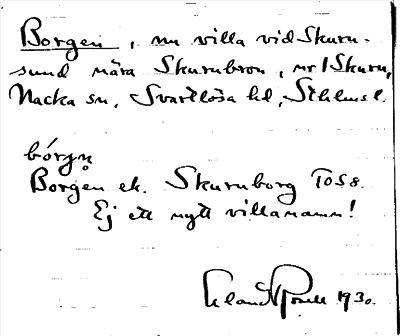 Borgen, nu villa vid Skuru-
sund nära Skurubron, nr 1 Skuru,
Nacka sn, Svartlösa hd, Sthlms l.
bórgn̥
Borgen ek. Skuruborg TOS 8.
Ej ett nytt villanamn!
1930.